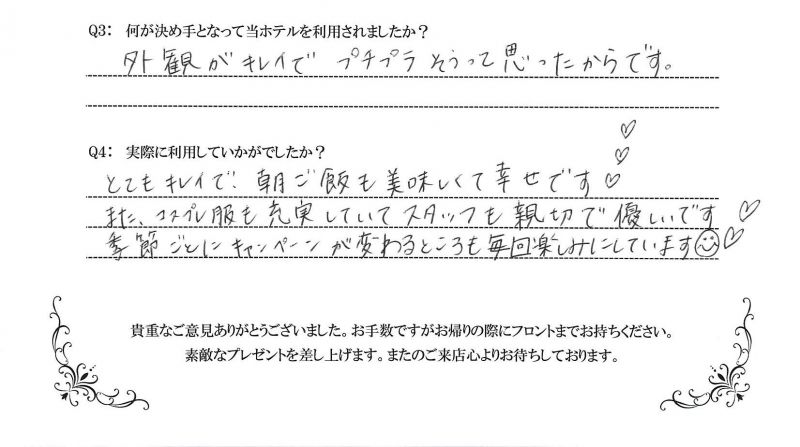 Q3： 何が決め手となって当ホテルを利用されましたか？
外観がキレイで プチプラそうって思ったからです。
Q4： 実際に利用していかがでしたか？
とてもキレイで、朝ご飯も美味しくて幸せです♡
また、コスプレ服も充実していてスタッフも親切で優しいです♡
季節ごとにキャンペーンが変わるところも毎回楽しみにしています☺♡
貴重なご意見ありがとうございました。お手数ですがお帰りの際にフロントまでお持ちください。
素敵なプレゼントを差し上げます。またのご来店心よりお待ちしております。